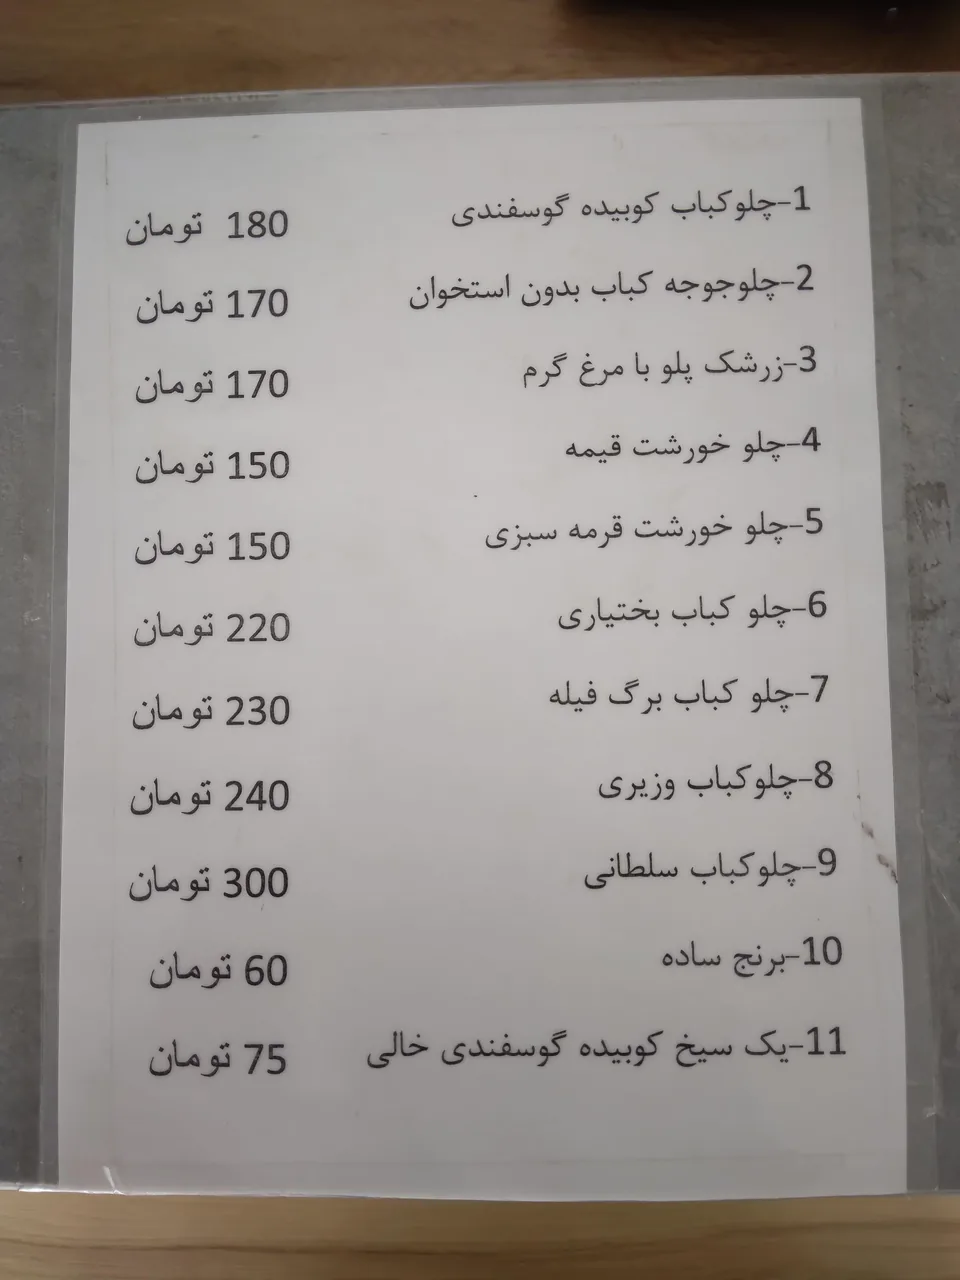 1-چلوکباب کوبیده گوسفندی 180 تومان
2-چلوجوجه کباب بدون استخوان 170 تومان
3-زرشک پلو با مرغ گرم 170 تومان
4-چلو خورشت قیمه 150 تومان
5-چلو خورشت قرمه سبزی 150 تومان
6-چلو کباب بختیاری 220 تومان
7-چلو کباب برگ فیله 230 تومان
8-چلوکباب وزیری 240 تومان
9-چلوکباب سلطانی 300 تومان
10-برنج ساده 60 تومان
11-یک سیخ کوبیده گوسفندی خالی 75 تومان